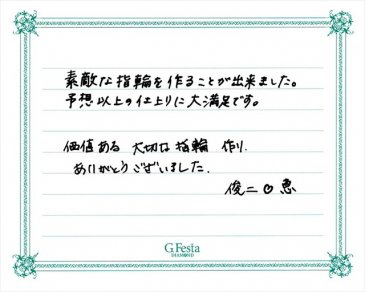 素敵な指輪を作ることが出来ました。
予想以上の仕上りに大満足です。
価値ある 大切な指輪 作り、
ありがとうございました。
俊二♡恵
G.Festa
DIAMOND